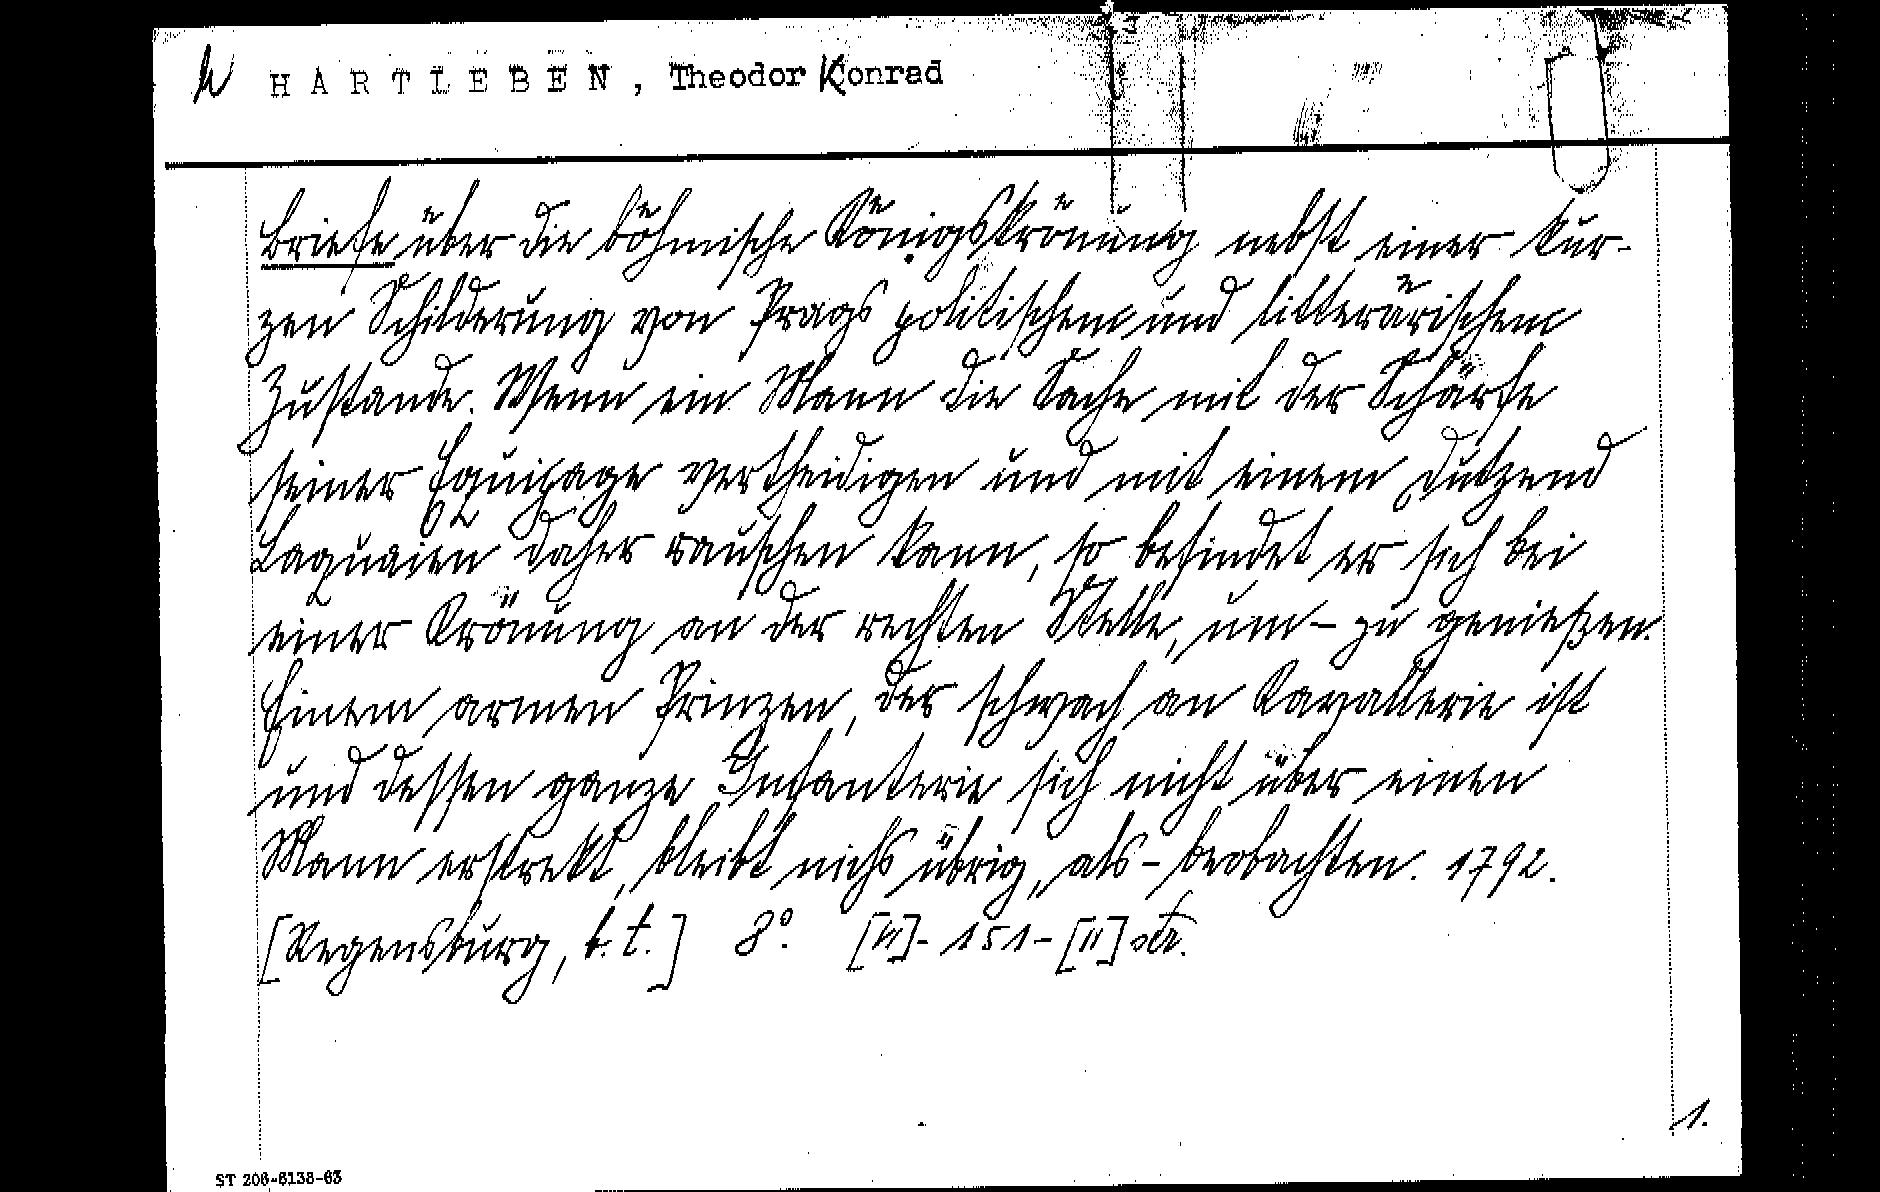 H A R T L E B E N , Theodor Konrad
Briefe über die böhmische Königskrönung nebst einer kur-
zen Schilderung von Prags politischem und litterärischem
Zustande. Wenn ein Mann die Sache mit der Schärfe
seiner Equipage vertheidigen und mit einem Dutzend
Laquaien daher rauschen kann, so befindet er sich bei
einer Krönung an der rechten Stelle, um – zu genießen.
Einem armen Prinzen, der schwach an Kavallerie ist
und dessen ganze Infanterie sich nicht über einen
Mann erstrekt, bleibt nichs übrig, als – beobachten. 1792.
[Regensburg, b. t.] 8°. [VI]- 151 - [II] str.
1.
ST 206-6138-63